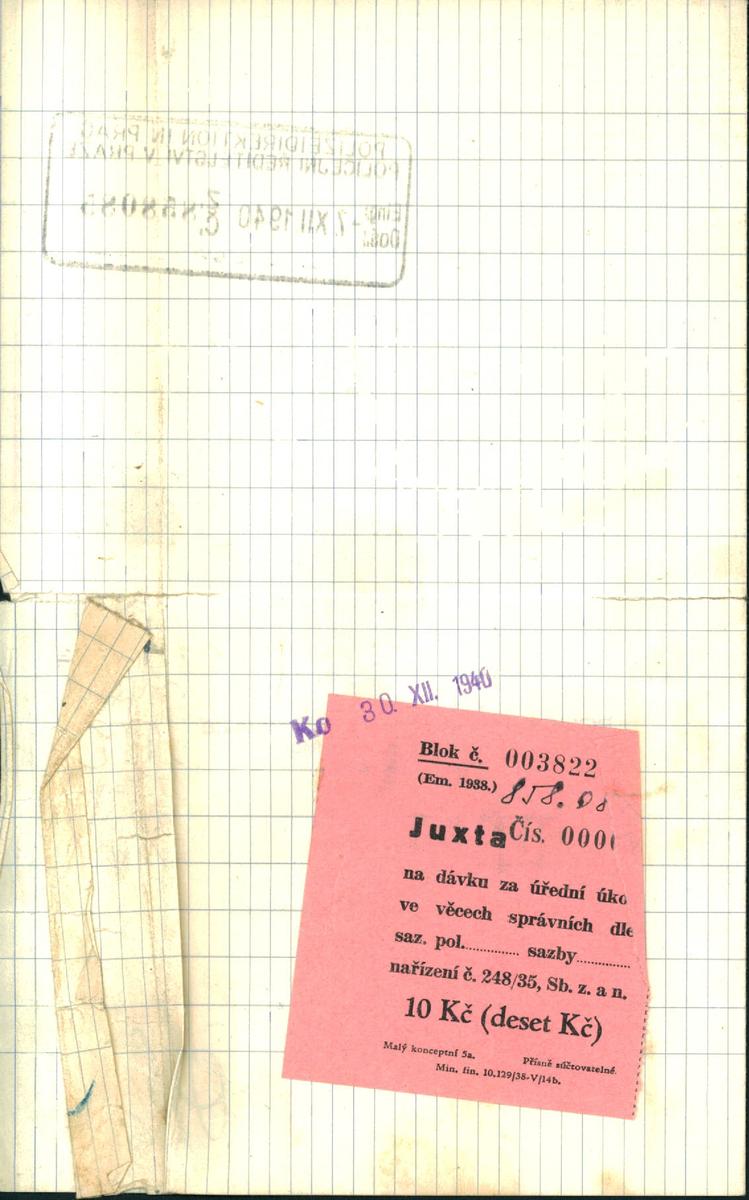 POLIZEIDIREKTION IN PRAG
POLICEJNÍ ŘEDITELSTVÍ V PRAZE
Eing. -7. XII 1940
Došlo
Ko 30. XII. 1940
Blok č. 003822
(Em. 1938.) 858.08
Juxta Čís. 000
na dávku za úřední úko
ve věcech správních dle
saz. pol. ............ sazby ............
nařízení č. 248/35, Sb. z. a n.
10 Kč (deset Kč)
Malý konceptní 5a. Přísně súčtovatelné.
Min. fin. 10.129/38-V/14b.